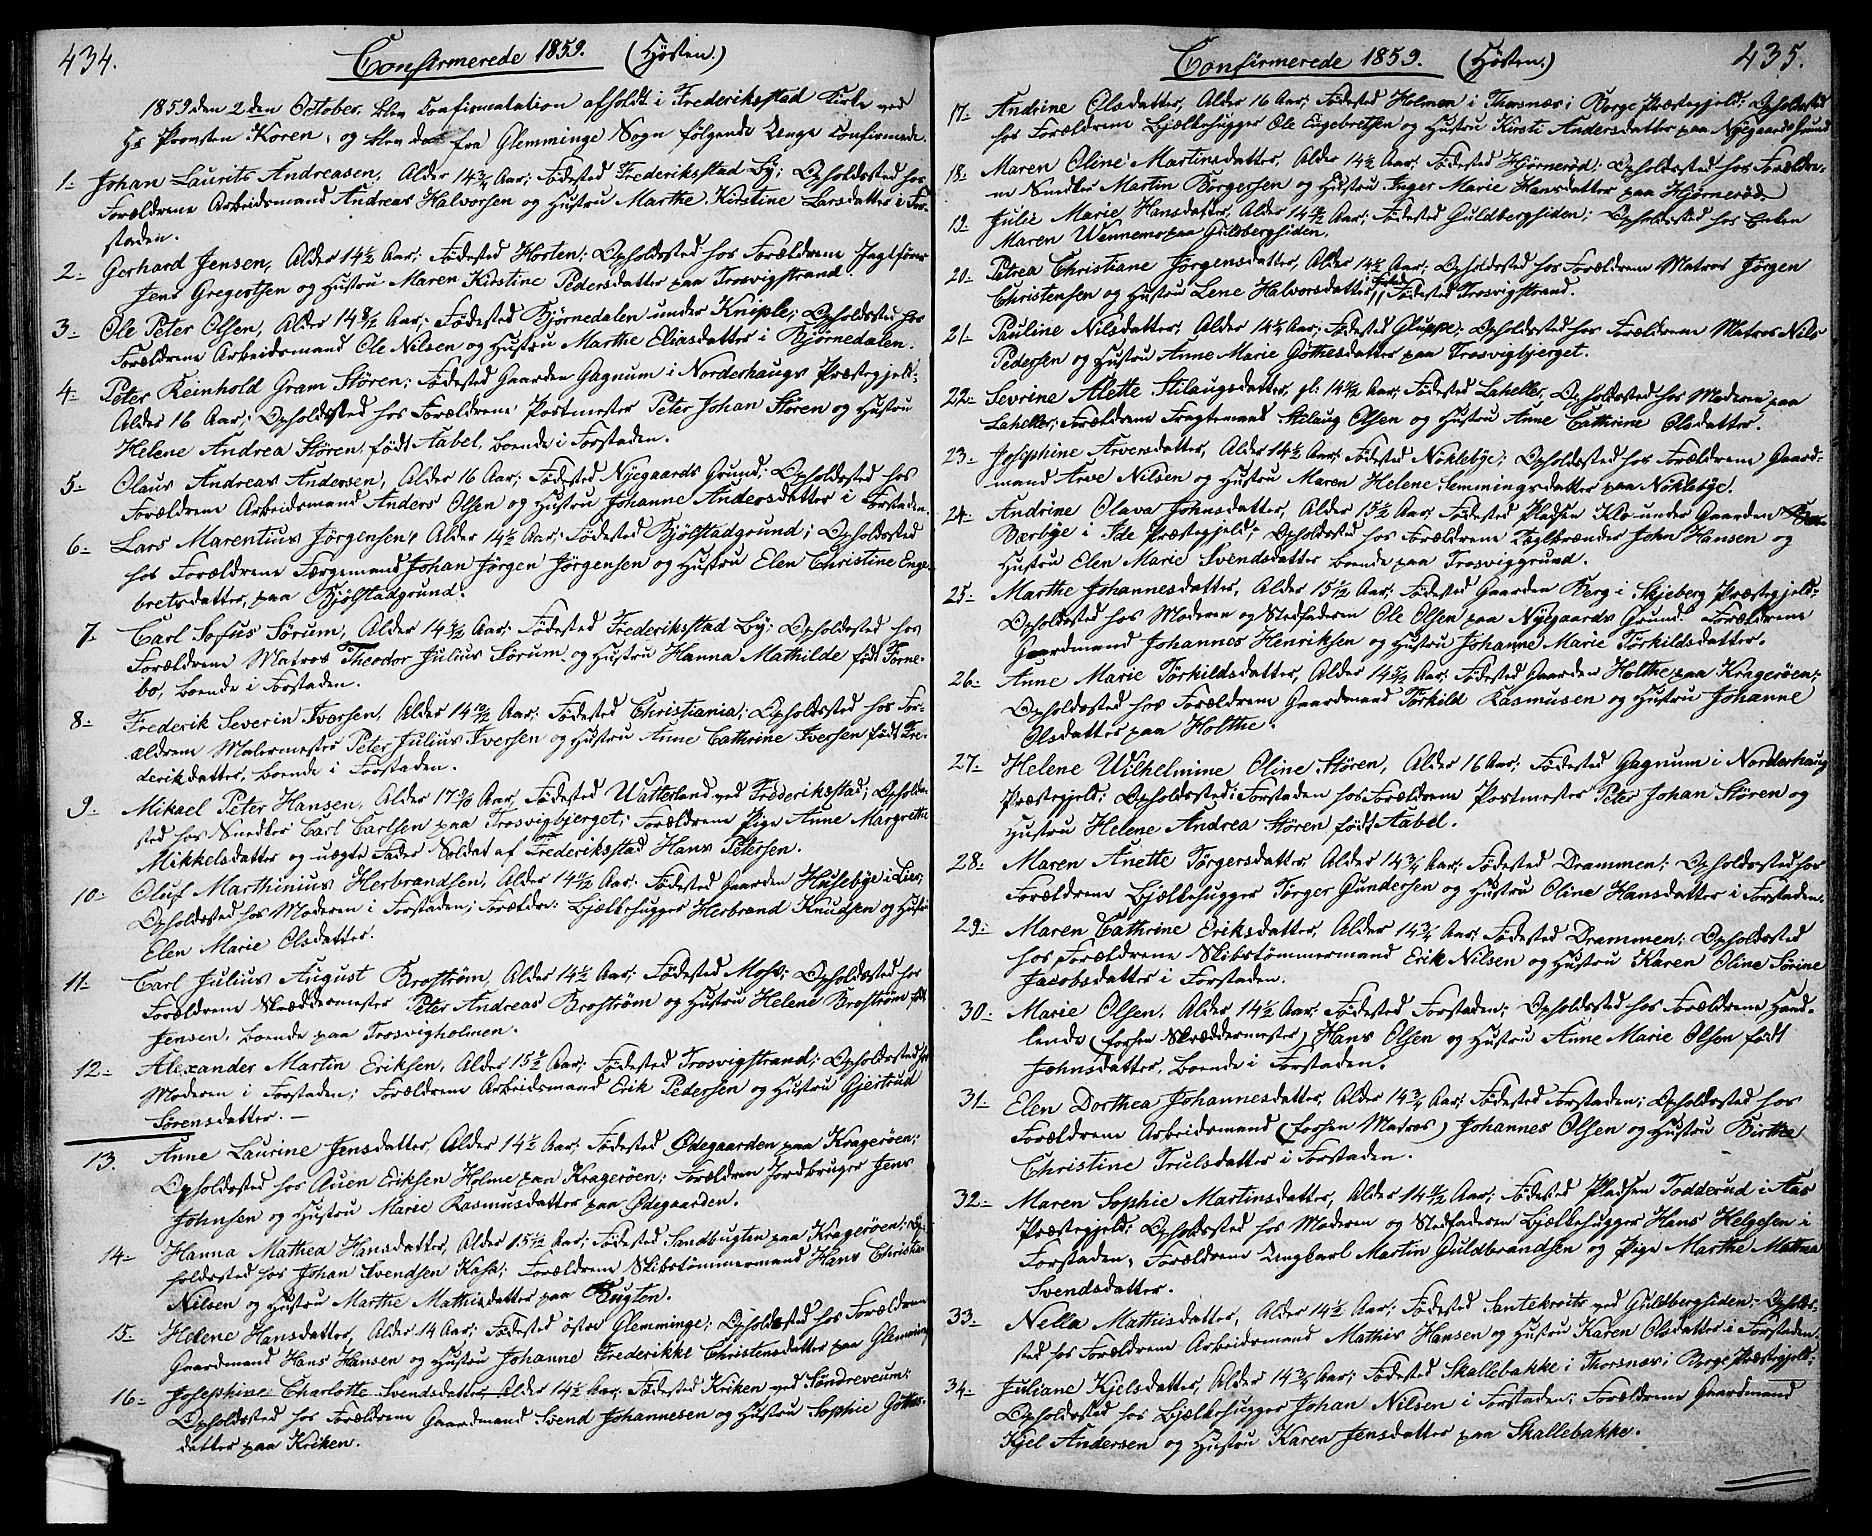 434.
Confirmerede 1859. (Høsten.)
1859 den 2den October, blev Confirmation afholdt i Frederikstad Kirke ved
Hr Provsten Koren, og blev da fra Glemminge Sogn følgende Unge confirmerede.
1. Johan Laurits Andreasen, Alder 14 3/4 Aar; Fødested Frederikstad By; Opholdssted hos
Forældrene Arbeidsmand Andreas Halvorsen og Hustru Marthe Kirstine Larsdatter i For-
staden.
2. Gerhard Jensen, Alder 14 1/2 Aar; Fødested Horten; Opholdssted hos Forældrene
Jens Gregertsen og Hustru Maren Kirstine Pedersdatter paa Trosvigstrand
3. Ole Peter Olsen, Alder 14 8/12 Aar; Fødested Bjørnedalen under Kniple; Opholdssted hos
Forældrene Arbeidsmand Ole Nilsen og Hustru Marthe Eliasdatter i Bjørnedalen.
4. Peter Reinhold Gram Støren; Fødested Gaarden Gagnum i Norderhaugs Præstegjeld;
Alder 16 Aar; Opholdssted hos Forældrene Postmester Peter Johan Støren og Hustru
Helene Andrea Støren, født Aabel, boende i Forstaden.
5. Olaus Andreas Andersen, Alder 16 Aar; Fødested Nygaards Grund; Opholdssted hos
Forældrene Arbeidsmand Anders Olsen og Hustru Johanne Andersdatter i Forstaden.
6. Lars Marentius Jørgensen, Alder 14 1/2 Aar; Fødested Bjølstadgrund; Opholdssted
hos Forældrene Færgemand Johan Jørgen Jørgensen og Hustru Elen Christine Enge-
bretsdatter, paa Bjølstadgrund.
7. Carl Sofus Sørum, Alder 14 Aar; Fødested Frederikstad By; Opholdssted hos
Forældrene Matros Theodor Julius Sørum og Hustru Hanna Mathilde født Torne-
bo, boende i Forstaden.
8. Frederik Severin Iversen, Alder 14 Aar; Fødested Christiania; Opholdssted hos For-
ældrene Malermester Peter Julius Iversen og Hustru Anne Cathrine Iversen født Fre-
derikdatter, boende i Forstaden.
9. Mikael Peter Hansen, Alder 17 Aar, Fødested Watterland ved Frederikstad; Opholds-
sted hos Snedker Carl Carlsen paa Trosvigbjerget; Forældrene Pige Anne Margrethe
Mikkelsdatter og uægte Fader Soldat af Frederikstad Hans Petersen.
10. Oluf Marthinius Herbrandsen, Alder 14 Aar. Fødested Gaarden Husebye i Lier;
Opholdssted hos Moderen i Forstaden; Forældre: Bjelkehugger Herbrand Knudsen og Hustru
Elen Marie Olsdatter.
11. Carl Julius August Brostrøm, Alder 14 1/2 Aar; Fødested Moss; Opholdssted hos
Forældrene Skræddermester Peter Andreas Brostrøm og Hustru Helene Brostrøm født
Jensen, boende paa Trosvigholmen.
12. Alexander Martin Eriksen, Alder 15 Aar; Fødested Trosvigstrand; Opholdssted hos
Moderen i Forstaden; Forældrene Arbeidsmand Erik Pedersen og Hustru Gjertrud
Sørensdatter.
13. Anne Laurine Jensdatter, Alder 14 1/2 Aar; Fødested Ødegaarden paa Kragerøen;
Opholdssted hos Auen Eriksen Holme paa Kragerøen; Forældrene Jordbruger Jens
Johnsen og Hustru Marie Rasmusdatter paa Ødegaarden.
14. Hanna Mathea Hansdatter, Alder 15 Aar; Fødested Sandbugten paa Kragerøen; Op-
holdssted hos Johan Svendsen Kase; Forældrene Skibstømmermand Hans Christian
Nilsen og Hustru Marthe Mathisdatter paa Bugten.
15. Helene Hansdatter, Alder 14 Aar; Fødested østre Glemminge; Opholdssted hos Forældrene
Gaardmand Hans Hansen og Hustru Johanne Frederikke Christensdatter paa Glemminge
16. Josephine Charlotte Svendsdatter, Alder 14 1/2 Aar, Fødested Kriken ved Søndreveum;
Opholdssted hos Forældrene Gaardmand Svend Johannesen og Hustru Sophie Gothes-
datter paa Kriken.
435.
Confirmerede 1859. (Høsten.)
17. Andrine Olsdatter, Alder 16 Aar; Fødested Holmen i Thorsnæs i Borge Præstegjeld; Opholdssted
hos Forældrene Bjælkehugger Ole Engebretsen og Hustru Kirsti Andersdatter paa Nygaards Grund
18. Maren Oline Martinsdatter, Alder 14 1/2 Aar; Fødested Hjørnerød; Opholdssted hos Forældre-
ne Snedker Martin Borgersen og Hustru Inger Marie Hansdatter paa Hjørnerød.
19. Julie Marie Hansdatter, Alder 14 Aar; Fødested Guldbergsiden; Opholdssted hos Enken
Maren Wennemo paa Guldbergsiden.
20. Petrea Christiane Jørgensdatter, Alder 14 1/2 Aar; Opholdssted hos Forældrene Matros Jørgen
Christensen og Hustru Lene Halvorsdatter; Fødested Trosvigstrand.
21. Pauline Nilsdatter, Alder 14 Aar; Fødested Gluppe; Opholdssted hos Forældrene Matros Nils
Pedersen og Hustru Anne Marie Gothesdatter paa Trosvigbjerget.
22. Sevrine Alette Stilaugsdatter, gl: 14 Aar, Fødested Lahelle, Opholdssted hos Moderen paa
Lahelle; Forældrene Fragtemand Stelaug Olsen og Hustru Anne Cathrine Olsdatter.
23. Josephine Arvensdatter, Alder 14 1/2 Aar, Fødested Nøklebye; Opholdssted hos Forældrene Gaard-
mand Arve Nilsen og Hustru Maren Helene Semmingsdatter paa Nøklebye.
24. Andrine Olava Johnsdatter, Alder 15 1/2 Aar; Fødested Pladsen Klo under Gaarden
Berbye i Ide Præstegjeld; Opholdssted hos Forældrene Teglbrænder John Hansen og
Hustru Elen Marie Svendsdatter boende paa Trosviggrund.
25. Marthe Johannesdatter, Alder 15 1/2 Aar; Fødested Gaarden Berg i Skjeberg Præstegjeld;
Opholdssted hos Moderen og Stedfaderen Ole Olsen paa Nygaards Grund. Forældrene
Gaardmand Johannes Henriksen og Hustru Johanne Marie Torkildsdatter.
26. Anne Marie Torkildsdatter, Alder 14 Aar; Fødested Gaarden Holthe paa Kragerøen;
Opholdssted hos Forældrene Gaardmand Torkild Rasmusen og Hustru Johanne
Olsdatter paa Holthe.
27. Helene Wilhelmine Oline Støren, Alder 16 Aar; Fødested Gagnum i Norderhaug
Præstegjeld; Opholdssted i Forstaden hos Forældrene Postmester Peter Johan Støren og
Hustru Helene Andrea Støren født Aabel.
28. Maren Anette Torgersdatter, Alder 14 3/4 Aar; Fødested Drammen; Opholdssted hos
Forældrene Bjælkehugger Torger Gundersen og Hustru Oline Hansdatter i Forstaden.
29. Maren Cathrine Eriksdatter, Alder 14 3/4 Aar; Fødested Drammen; Opholdssted
hos Forældrene Skibstømmermand Erik Nilsen og Hustru Karen Oline Sørine
Jacobsdatter i Forstaden.
30. Marie Olsen, Alder 14 1/2 Aar; Fødested Forstaden; Opholdssted hos Forældrene Hand-
lende (forhen Skræddermester) Hans Olsen og Hustru Anne Marie Olsen født
Johnsdatter, boende i Forstaden.
31. Elen Dorthea Johannesdatter, Alder 14 3/4 Aar; Fødested Forstaden; Opholdssted hos
Forældrene Arbeidsmand (forhen Matros) Johannes Olsen og Hustru Birthe
Christine Trulsdatter i Forstaden.
32. Maren Sophie Martinsdatter, Alder 14 Aar; Fødested Pladsen Todderud i Aas
Præstegjeld; Opholdssted hos Moderen og Stedfaderen Bjælkehugger Hans Helgesen i
Forstaden; Forældrene Ungkarl Martin Guldbrandsen og Pige Marthe Mathea
Svendsdatter.
33. Nella Mathisdatter, Alder 14 1/2 Aar; Fødested Santekroits ved Guldbergsiden; Opholds-
sted hos Forældrene Arbeidsmand Mathis Hansen og Hustru Karen Olsdatter i Forstaden.
34. Juliane Kjelsdatter, Alder 14 3/4 Aar; Fødested Skallebakke i Thorsnæs i Borge Præstegjeld;
Opholdssted hos Bjælkehugger Johan Nilsen i Forstaden; Forældrene Gaardmand
Kjel Andersen og Hustru Karen Jensdatter paa Skallebakke.